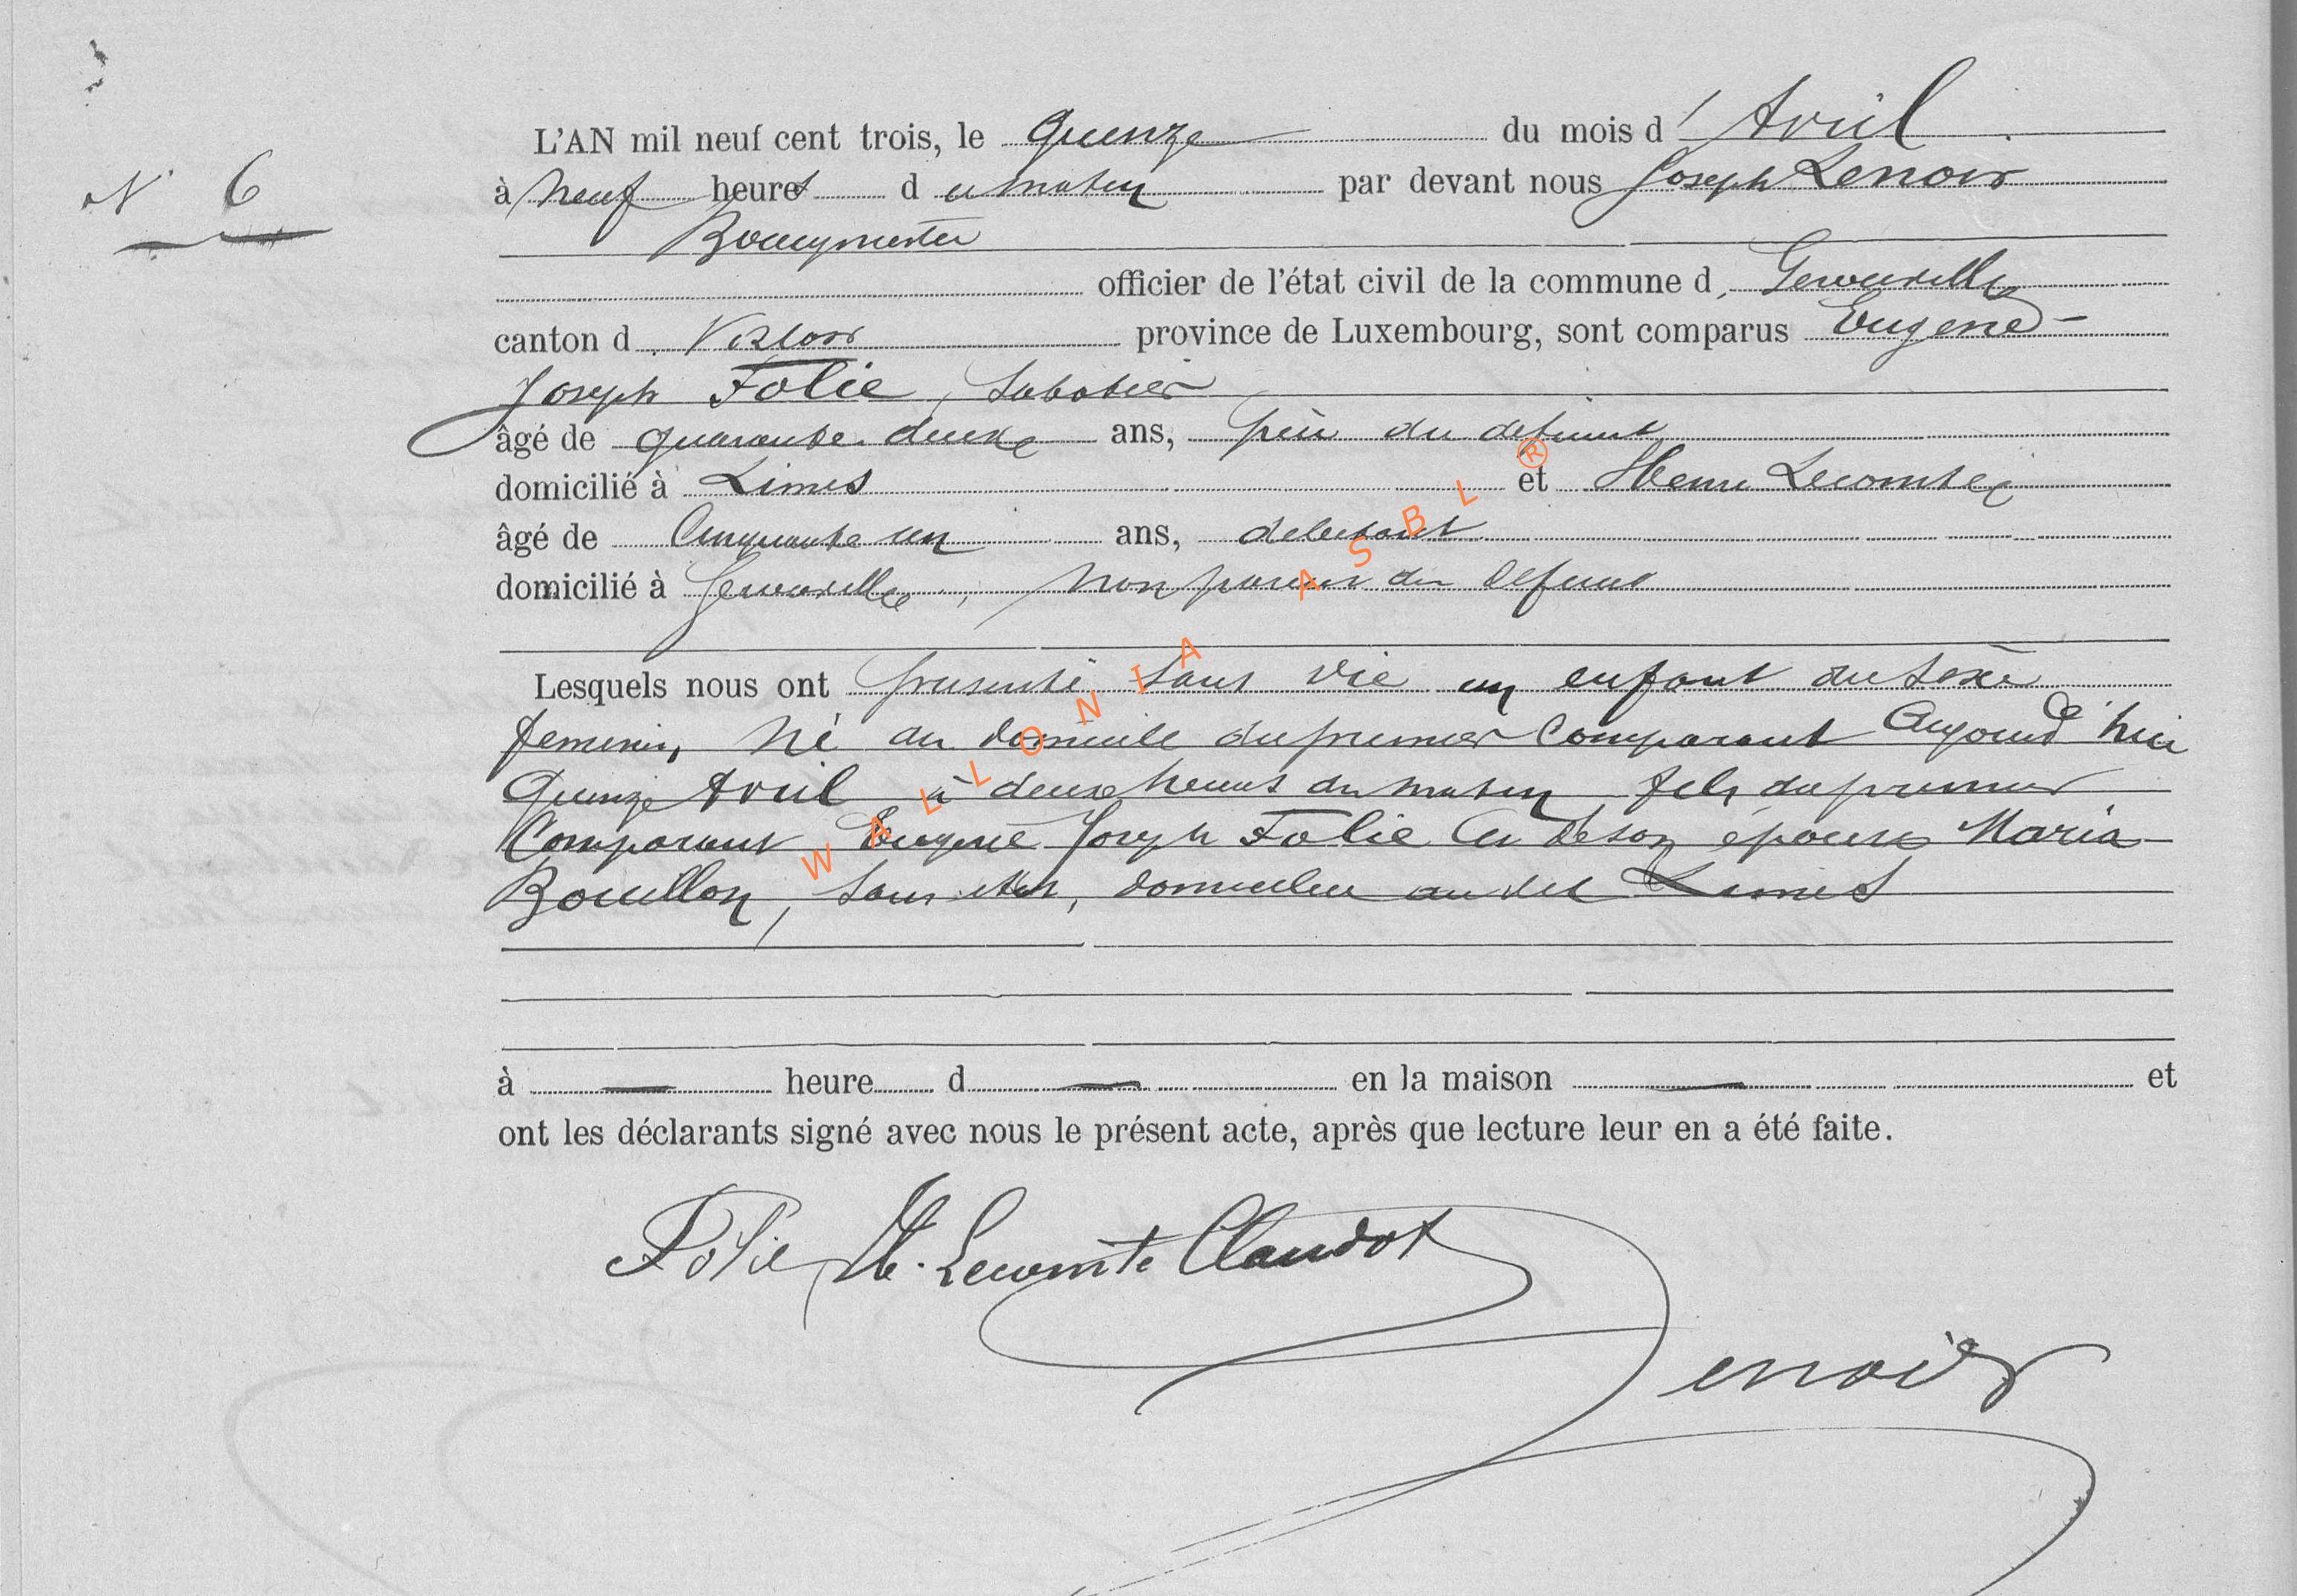 N° 6
L'AN mil neuf cent trois, le quinze du mois d'Avril
à neuf heures du matin par devant nous Joseph Lenoir
Bourgmestre
officier de l'état civil de la commune d. Gerouville
canton d. Virton province de Luxembourg, sont comparus Eugène
Joseph Folie, sabotier
âgé de quarante deux ans, père du défunt
domicilié à Limes et Henri Lecomte
âgé de Cinquante un ans, débitant
domicilié à Gerouville, non parent du défunt
Lesquels nous ont présenté sans vie un enfant du sexe
feminin, né au domicile du premier Comparant Aujourd'hui
Quinze Avril à deux heures du matin, fils du premier
Comparant Eugène Joseph Folie et de son épouse Maria
Bouillon, sans état, domiciliée au dit Limes
à — heure d — en la maison — et
ont les déclarants signé avec nous le présent acte, après que lecture leur en a été faite.
Folie H. Lecomte Claudot
Lenoir
WALLONIA ASBL ®